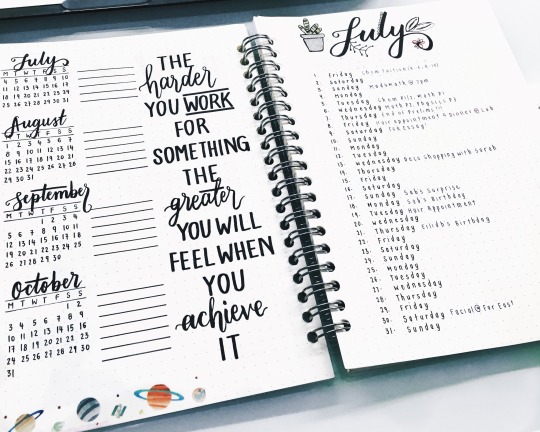 July
M T W T F S S
4 5 6 7 8 9 10
11 12 13 14 15 16 17
18 19 20 21 22 23 24
25 26 27 28 29 30 31
August
M T W T F S S
1 2 3 4 5 6 7
8 9 10 11 12 13 14
15 16 17 18 19 20 21
22 23 24 25 26 27 28
29 30 31
September
M T W T F S S
1 2 3 4
5 6 7 8 9 10 11
12 13 14 15 16 17 18
19 20 21 22 23 24 25
26 27 28 29 30
October
M T W T F S S
1 2
3 4 5 6 7 8 9
10 11 12 13 14 15 16
17 18 19 20 21 22 23
24 25 26 27 28 29 30
31
THE
harder
YOU WORK
FOR
SOMETHING
THE
greater
YOU WILL
FEEL WHEN
YOU
achieve
IT
July
1. Friday Chem Tuition
2. Saturday
3. Sunday
4. Monday
5. Tuesday Chem P1; Math P1
6. Wednesday Math P2; Physics P2
7. Thursday End of Prelims
8. Friday Hair Appointment & Dinner @
9. Saturday
10. Sunday
11. Monday
12. Tuesday
13. Wednesday Dress Shopping with Sarah
14. Thursday
15. Friday
16. Saturday
17. Sunday Sab's Surprise
18. Monday Sab's Birthday
19. Tuesday Hair Appointment
20. Wednesday
21. Thursday Birthday
22. Friday
23. Saturday
24. Sunday
25. Monday
26. Tuesday
27. Wednesday
28. Thursday
29. Friday
30. Saturday Facial @ Far East
31. Sunday